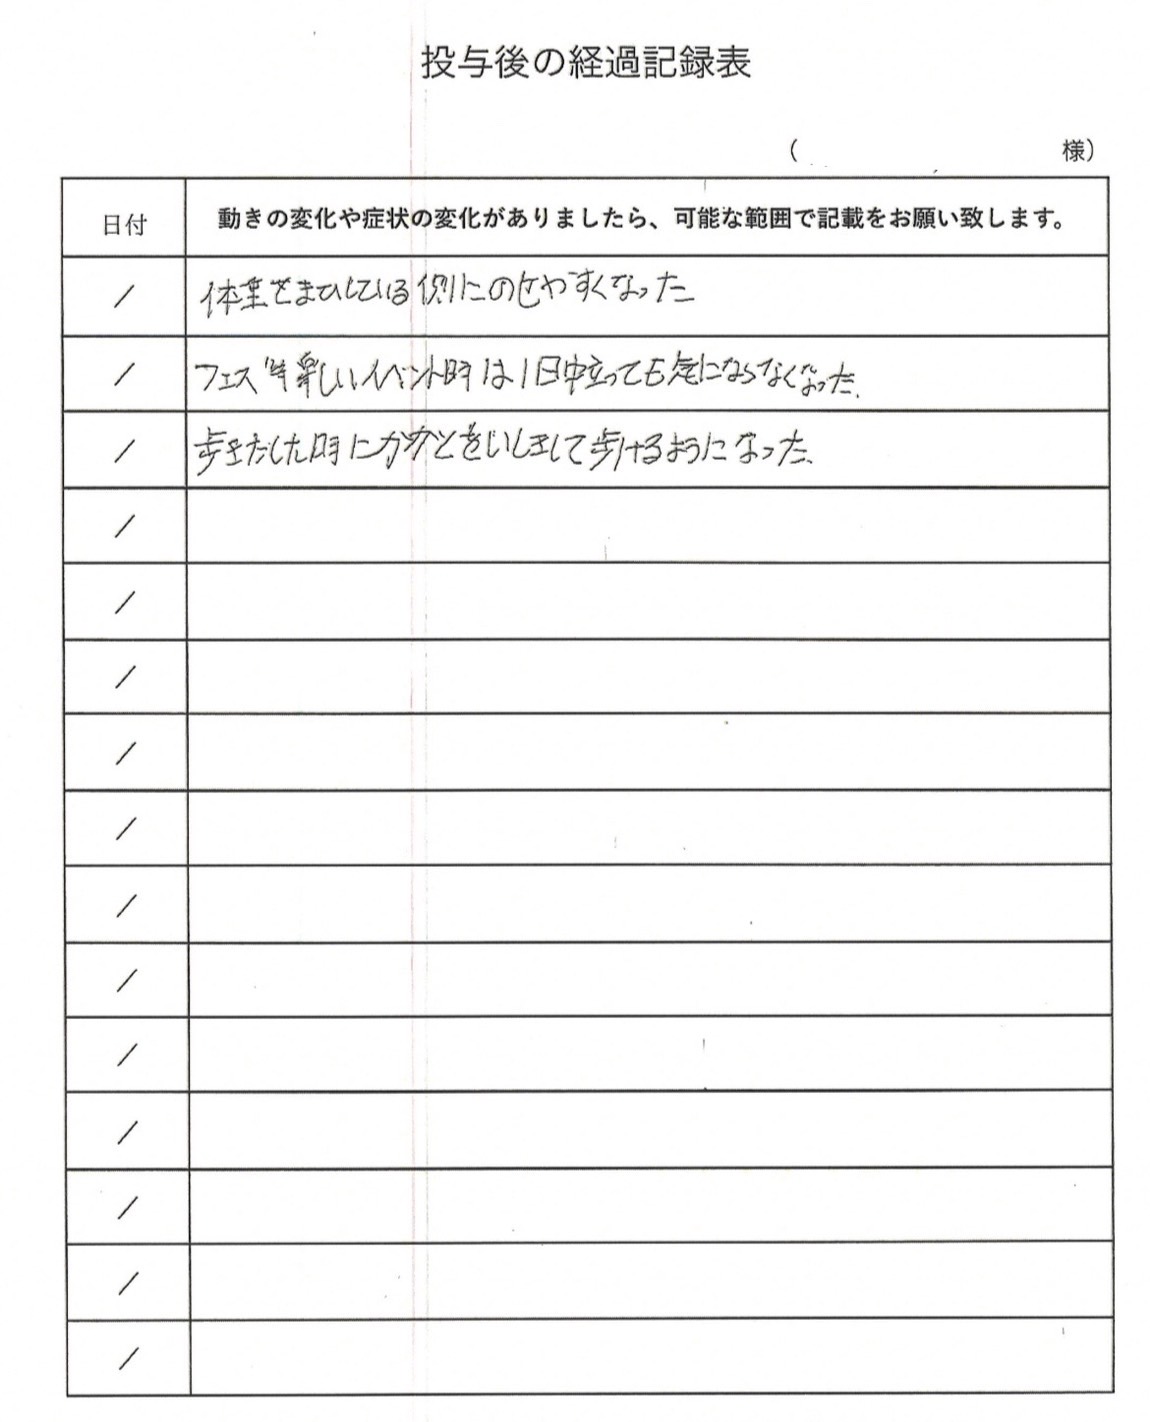 投与後の経過記録表
（ 様）
日付 動きの変化や症状の変化がありましたら、可能な範囲で記載をお願い致します。
/ 体重をまひしている側にのせやすくなった
/ フェス等楽しいイベント時は1日中立っても気にならなくなった。
/ 歩きだした時にかかとをいしきして歩けるようになった。
/
/
/
/
/
/
/
/
/
/
/
/